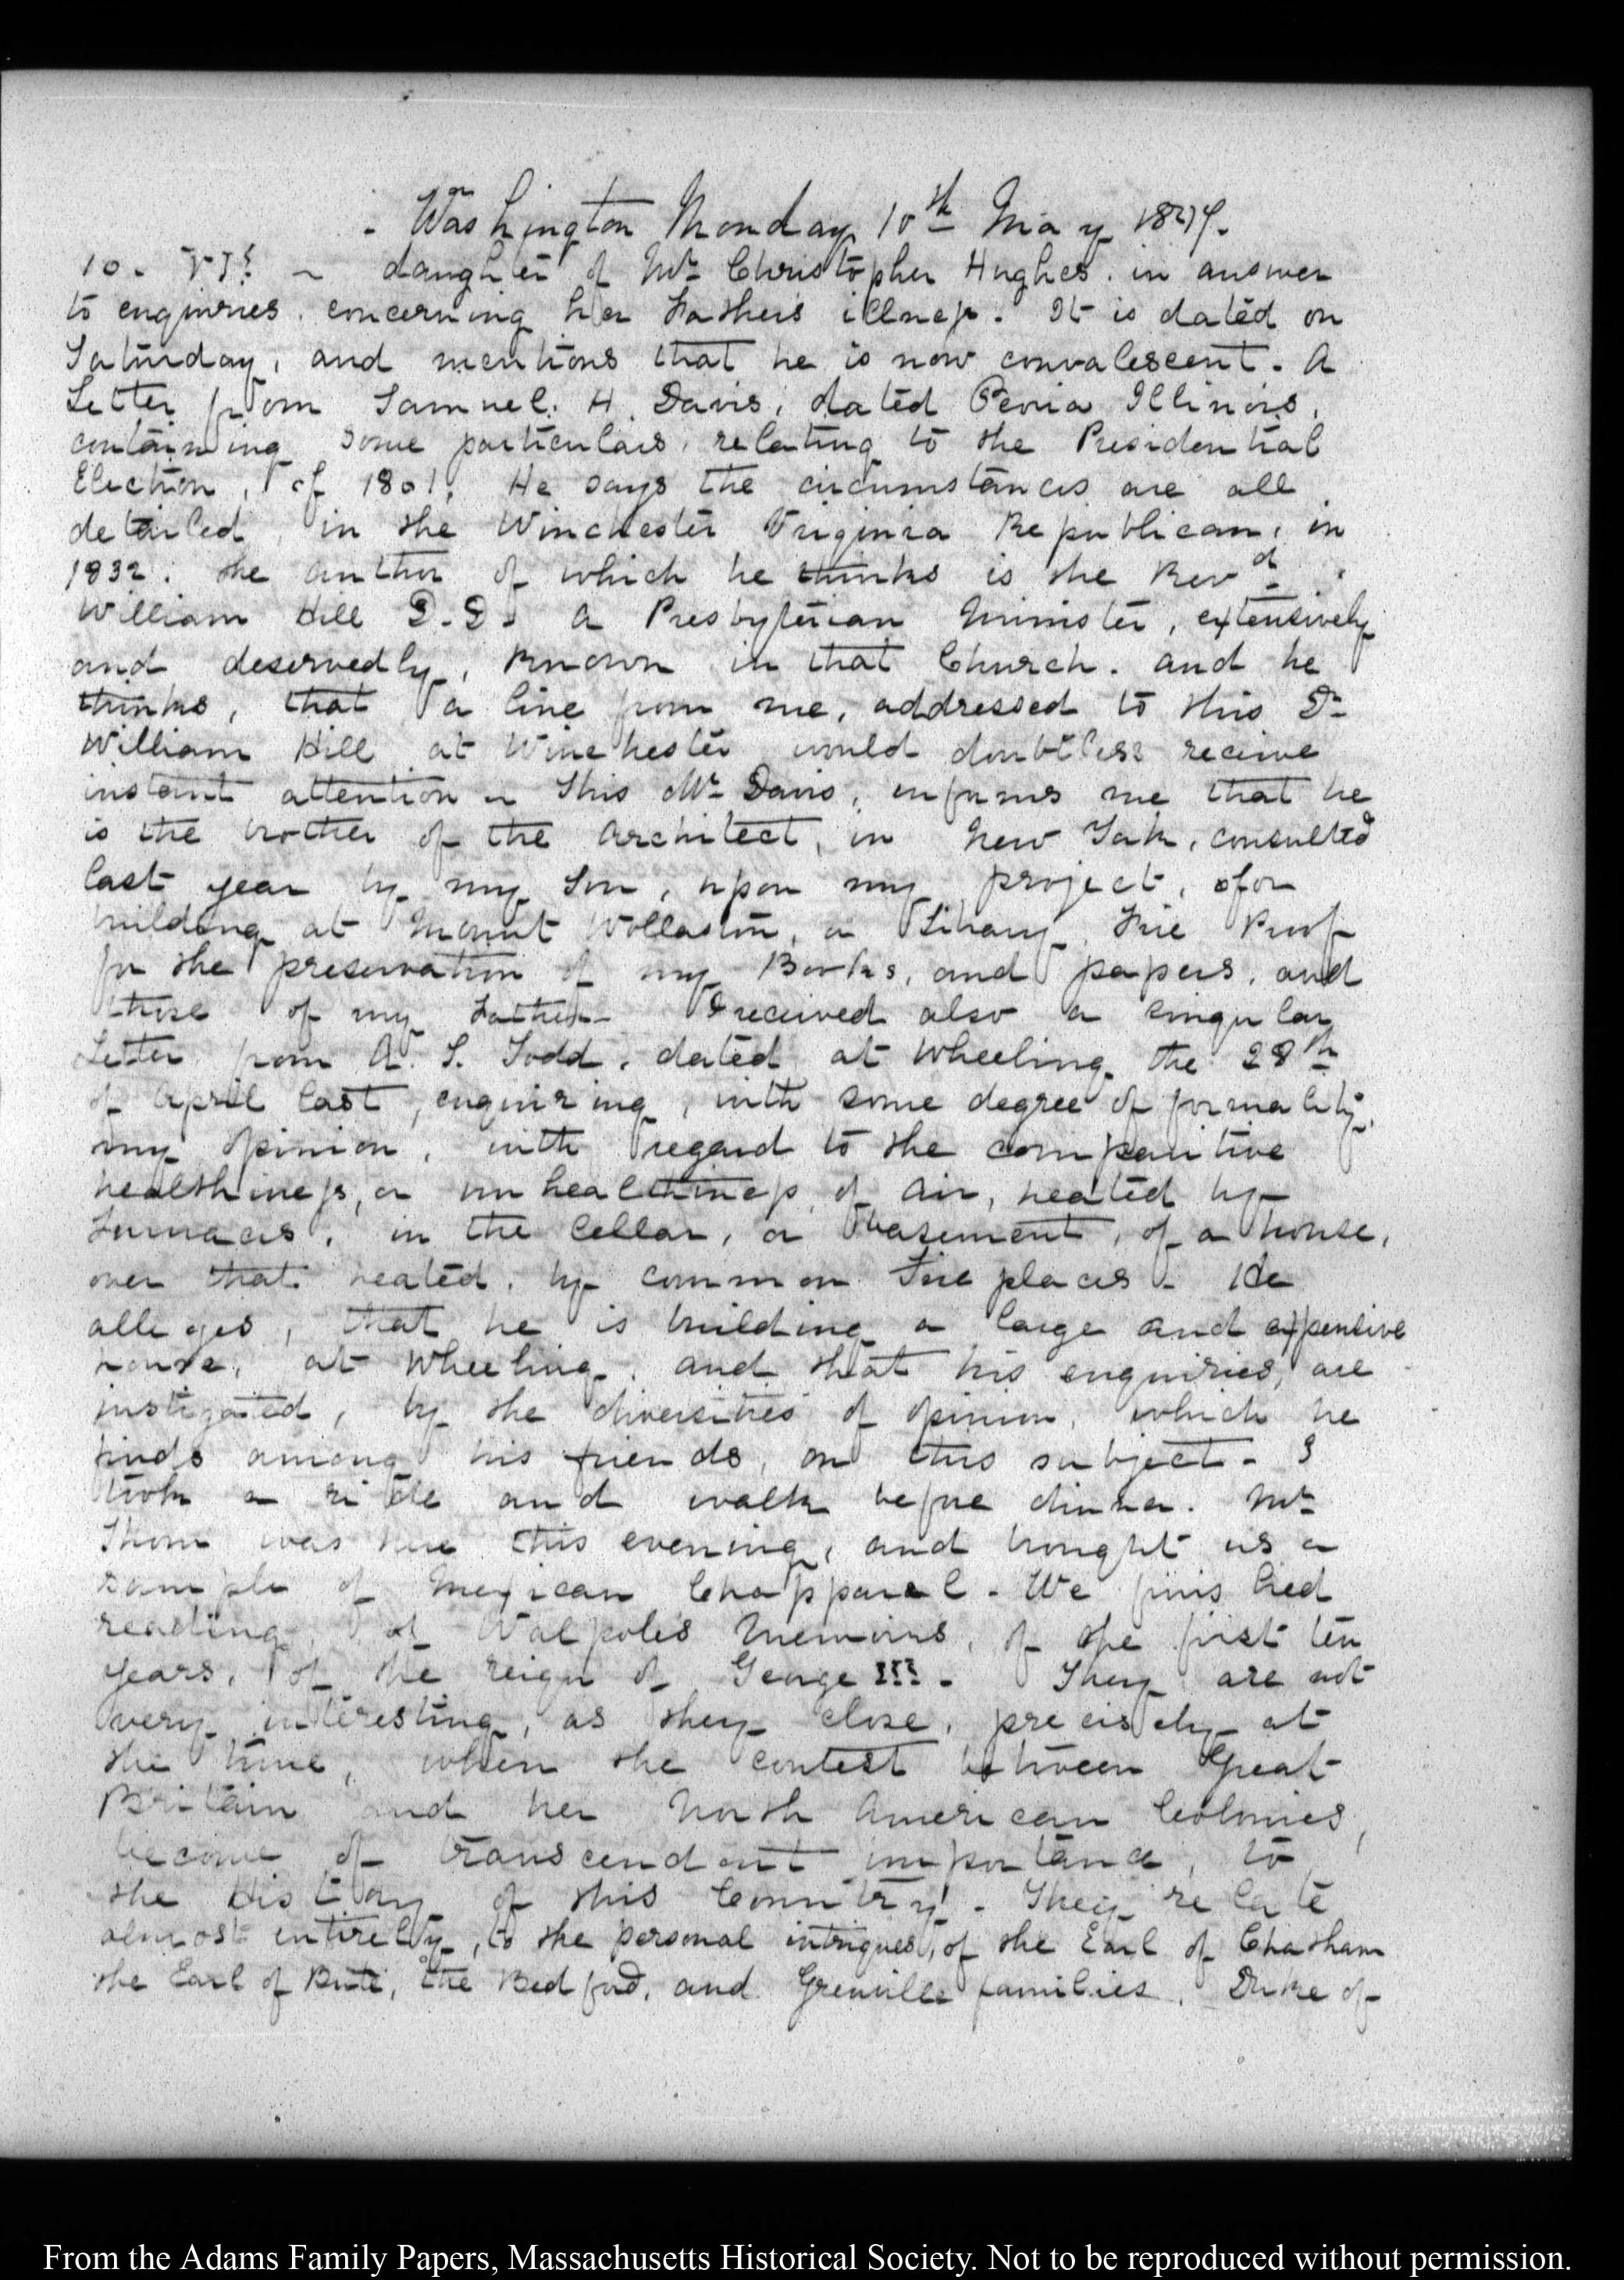 - Washington Monday 10th May 1847.
10. VI. ~ daughter of Mr Christopher Hughes. in answer
to enquiries. concerning her Father's illness. It is dated on
Saturday, and mentions that he is now convalescent. A
Letter from Samuel. H. Davis, dated Peoria Illinois,
containing some particulars, relating to the Presidential
Election, of 1801, He says the circumstances are all
detailed, in the Winchester Virginia Republican, in
1832. the author of which he thinks is the Revd.
William Hill D.D. a Presbyterian Minister, extensively
and deservedly, known in that Church. and he
thinks, that a line from me, addressed to this Dr
William Hill at Winchester would doubtless receive
instant attention ~ This Mr Davis, informs me that he
is the brother of the Architect, in New York, consulted
last year by my Son, upon my project, for
building at Mount Wollaston, a Library Fire Proof
for the preservation of my Books, and papers, and
those of my Father - I received also a singular
Letter from A. S. Todd. dated at Wheeling the 28th
of April last, enquiring, with some degree of formality,
my opinion, with regard to the comparitive
healthiness, or unhealthiness, of air, heated by
Furnaces, in the Cellar, or basement, of a house,
over that heated, by common Fire places - He
alleges, that he is building a large and expensive
house, at Wheeling, and that his enquiries, are
instigated, by the diversities of opinion, which he
finds among his friends, on this subject - I
took a ride and walk before dinner. Mr
Thom was here this evening, and brought us a
sample of Mexican Chapparal - We finished
reading, of Walpole's Memoirs, of the first ten
years, of the reign of George III. They are not
very interesting, as they close, precisely at
the time, when the contest between Great
Britain and her North American Colonies,
become of transcendant importance, to
the History of this Country. - They relate
almost entirely, to the personal intrigues, of the Earl of Chatham
the Earl of Bute, the Bedford, and Grenville families, Duke of
From the Adams Family Papers, Massachusetts Historical Society. Not to be reproduced without permission.